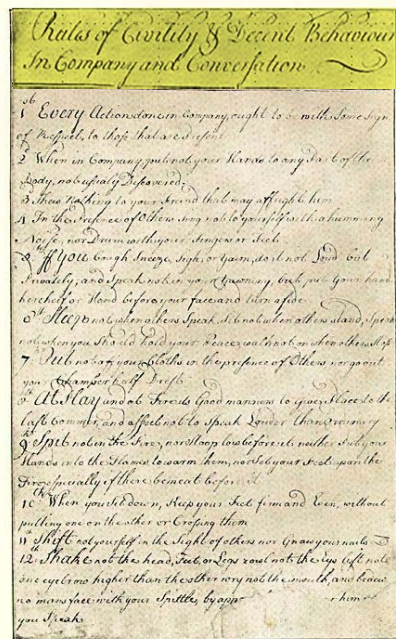 Rules of Civility & Decent Behaviour
In Company and Conversation
1 Every Action done in Company, ought to be with Some Sign
of Respect, to those that are Present
2 When in Company, put not your Hands to any Part of the
Body, not usually Discovered
3 Shew Nothing to your Friend that may affright him
4 In the Presence of Others sing not to yourself with a humming
Noise, nor Drum with your Fingers or Feet
5 If You Cough, Sneeze, Sigh, or Yawn, do it not Loud but
Privately; and Speak not in your Yawning, but put Your hand
kercheif or Hand before your face and turn aside
6 Sleep not when others Speak, Sit not when others stand, Speak
not when you Should hold your Peace, walk not on when others Stop
7 Put not off your Cloths in the presence of Others, nor go out
your Chamber half Drest
8 At Play and at Fire its Good manners to give Place to the
last Commer, and affect not to Speak Louder than ordinary
9 Spit not in the Fire, nor Stoop low before it neither Put your
Hands into the Flames to warm them, nor Set your Feet upon the
Fire especially if there be meat before it
10th When you Sit down, Keep your Feet firm and Even, without
putting one on the other or Crossing them
11th Shift not yourself in the Sight of others nor Gnaw your nails
12th Shake not the head, Feet, or Legs rowl not the Eys lift not
one eyebrow higher than the other wry not the mouth, and bedew
no mans face with your Spittle, by app him
you Speak